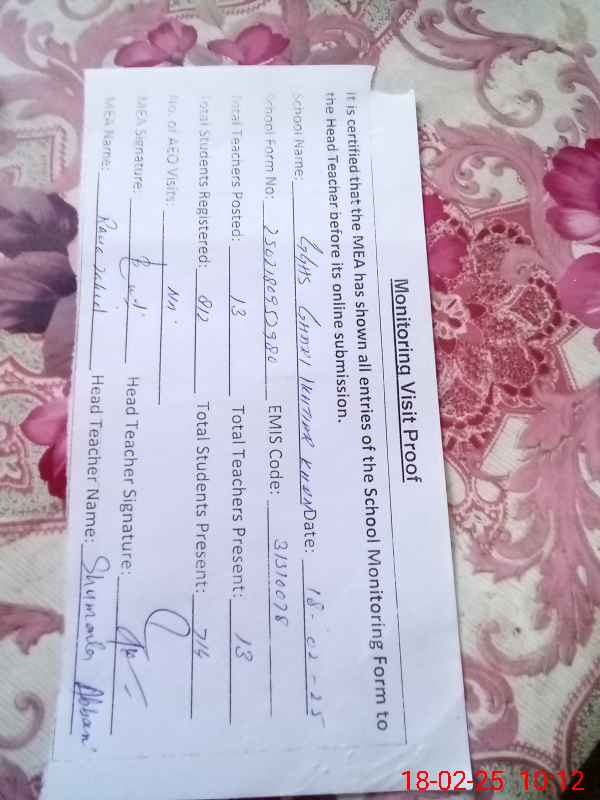 Monitoring Visit Proof
It is certified that the MEA has shown all entries of the School Monitoring Form to
the Head Teacher before its online submission.
School Name: GGHS KHAN Date: 18-02-25
School Form No: 250218095980 EMIS Code: 31310078
Total Teachers Posted: 13 Total Teachers Present: 13
Total Students Registered: 812 Total Students Present: 714
No. of AEO Visits: Nil
MEA Signature: Head Teacher Signature:
MEA Name: Head Teacher Name: Shumaila
18-02-25 10:12